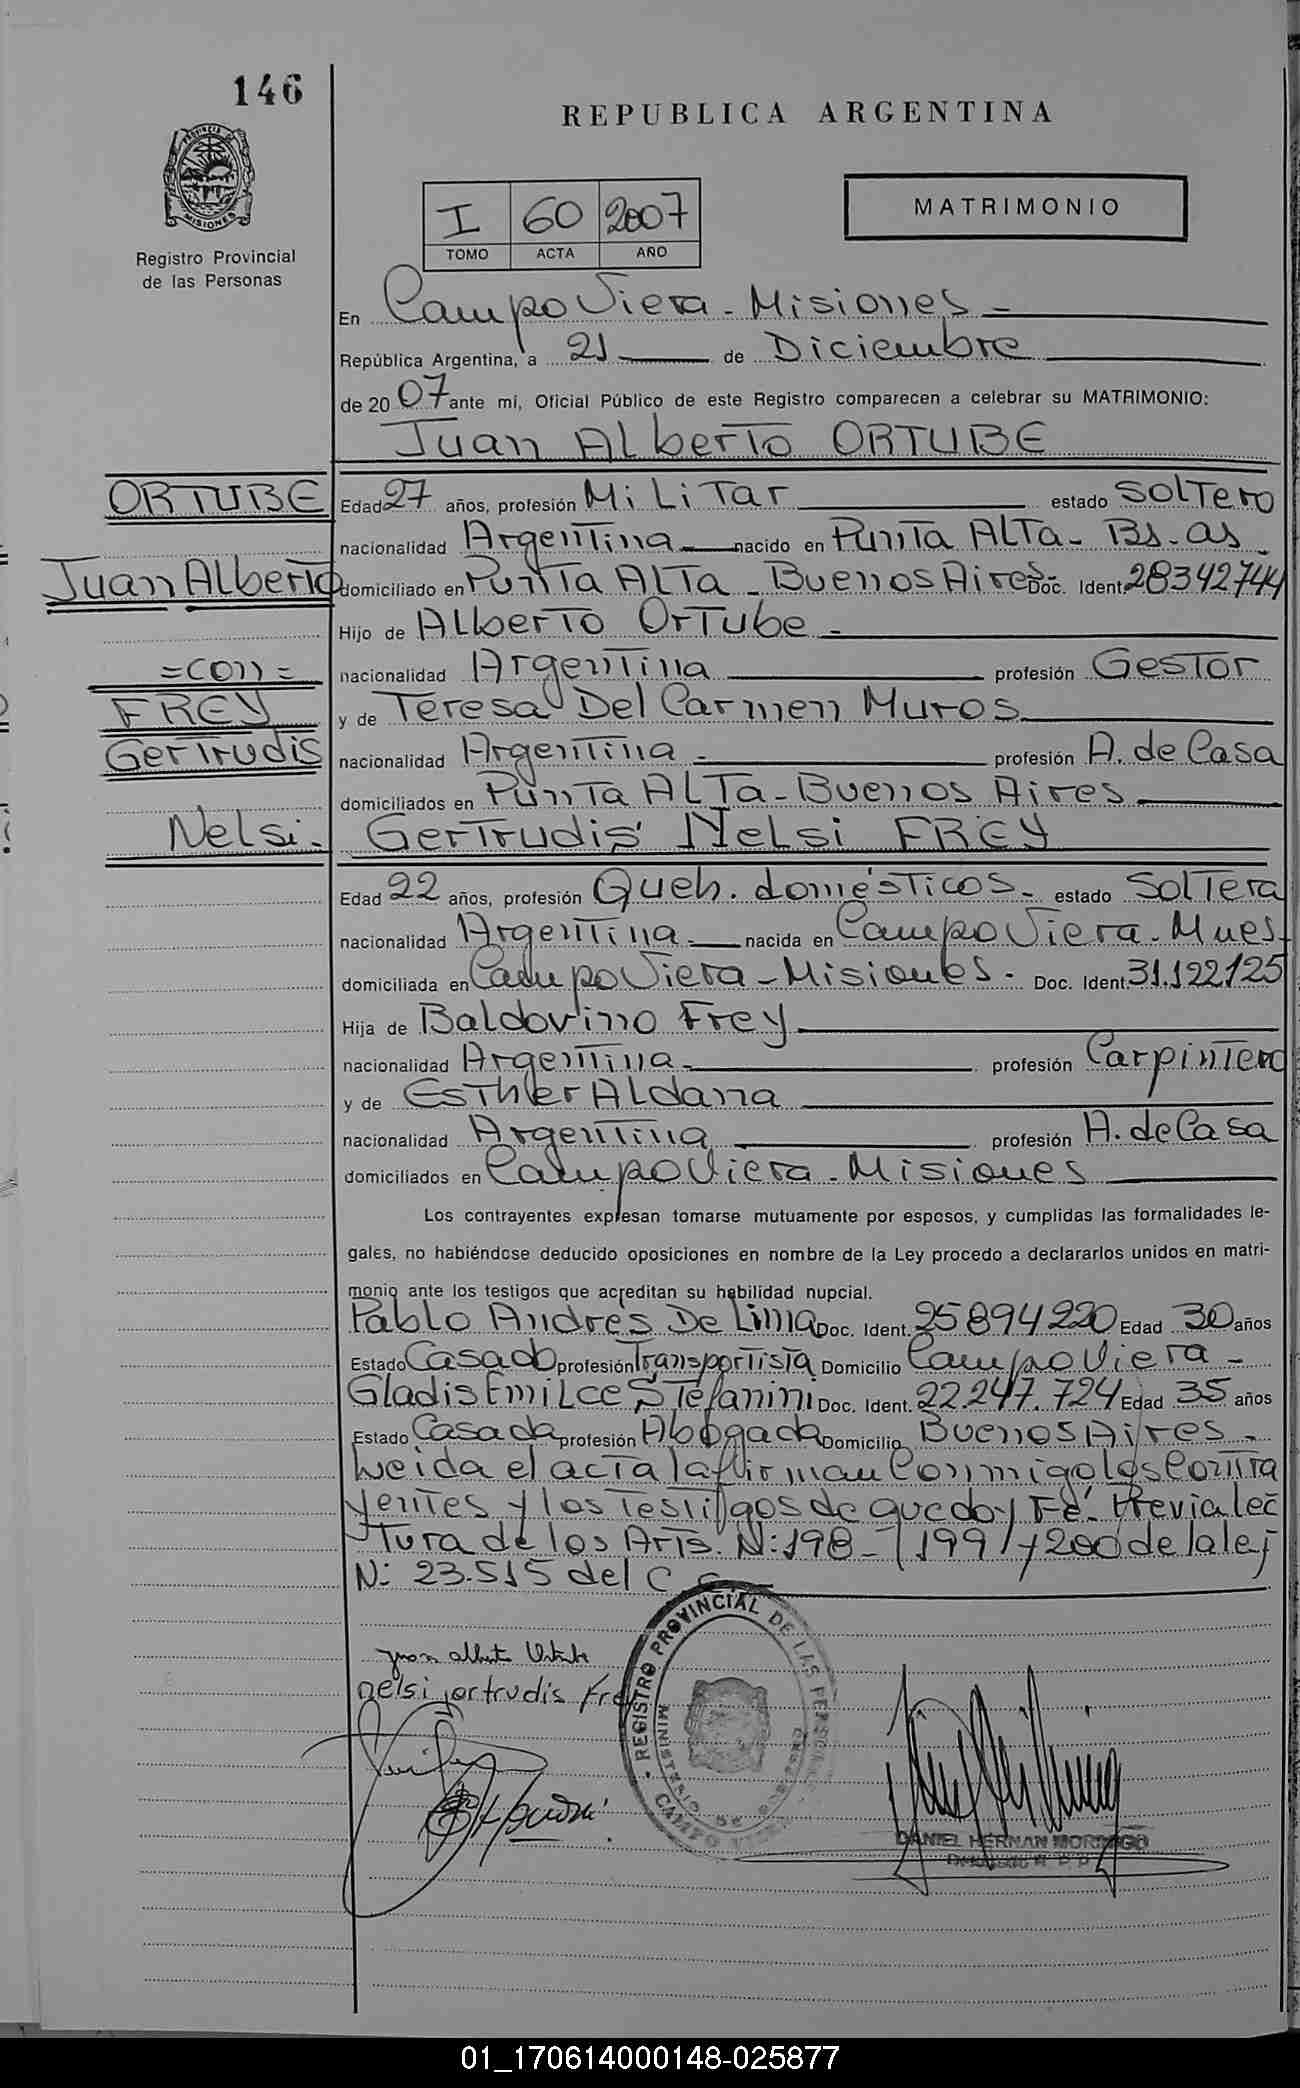 146
REPUBLICA ARGENTINA
PROVINCIA DE MISIONES
I 60 2007
TOMO ACTA AÑO
MATRIMONIO
Registro Provincial
de las Personas
En Campo Viera - Misiones -
República Argentina, a 21 de Diciembre
de 20 07 ante mí, Oficial Público de este Registro comparecen a celebrar su MATRIMONIO:
Juan Alberto ORTUBE
ORTUBE
Juan Alberto
=con=
FREY
Gertrudis
Nelsi.
Edad 27 años, profesión Militar estado Soltero
nacionalidad Argentina nacido en Punta Alta - Bs. as.
domiciliado en Punta Alta - Buenos Aires - Doc. Ident. 28342744
Hijo de Alberto Ortube -
nacionalidad Argentina profesión Gestor
y de Teresa Del Carmen Muros
nacionalidad Argentina - profesión A. de Casa
domiciliados en Punta Alta - Buenos Aires
Gertrudis Nelsi FREY
Edad 22 años, profesión Queh. domésticos - estado Soltera
nacionalidad Argentina nacida en Campo Viera - Mnes -
domiciliada en Campo Viera - Misiones - Doc. Ident. 31.122125
Hija de Baldovino Frey
nacionalidad Argentina - profesión Carpintero
y de Esther Aldana
nacionalidad Argentina profesión A. de Casa
domiciliados en Campo Viera - Misiones
Los contrayentes expresan tomarse mutuamente por esposos, y cumplidas las formalidades le-
gales, no habiéndose deducido oposiciones en nombre de la Ley procedo a declararlos unidos en matri-
monio ante los testigos que acreditan su habilidad nupcial.
Pablo Andrés De Lima Doc. Ident. 25894220 Edad 30 años
Estado Casado profesión Transportista Domicilio Campo Viera -
Gladis Emilce Stefanini Doc. Ident. 22.247.724 Edad 35 años
Estado Casada profesión Abogada Domicilio Buenos Aires -
Leida el acta la firman Conmigo los Contra
yentes y los testigos de que doy Fé. Previa lec
tura de los Arts. N: 198 - 199 y 200 de la ley
N: 23.515 del C. C.
Juan Alberto Ortube
Nelsi Gertrudis Frey
REGISTRO PROVINCIAL DE LAS PERSONAS
MINISTERIO DE GOBIERNO
CAMPO VIERA
DANIEL HERNAN
01_170614000148-025877